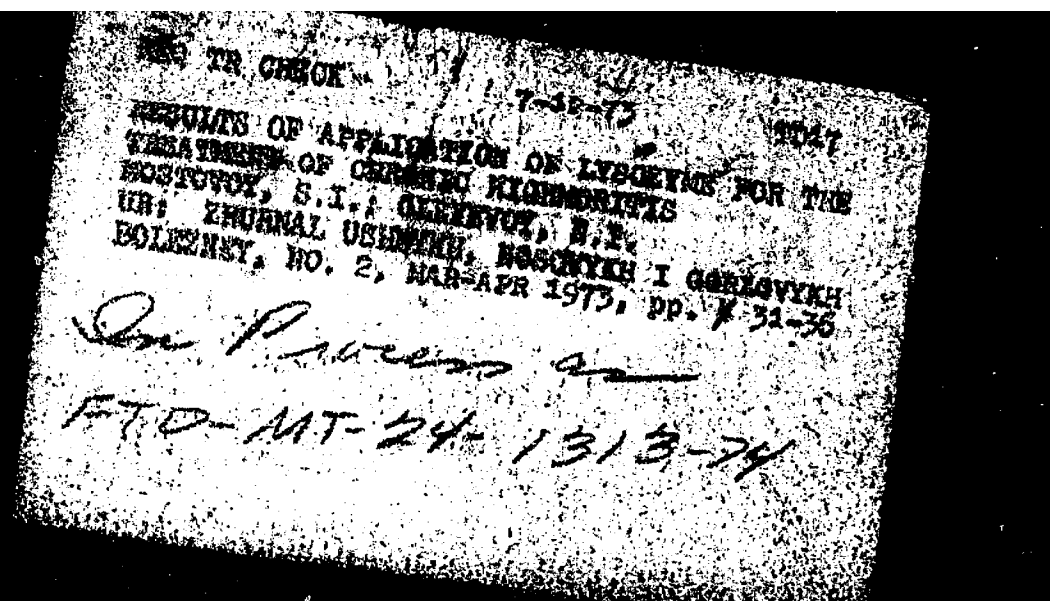 TR CHECK
7-18-73
RESULTS OF APPLICATION OF LYSOZYME FOR THE
TREATMENT OF CHRONIC HIGHMORITIS
S.I.;
UR: ZHURNAL USHNYKH, NOSOVYKH I GORLOVYKH
BOLEZNEY, NO. 2, MAR-APR 1973, pp. 31-36
In Process as
FTD-MT-24-1313-74